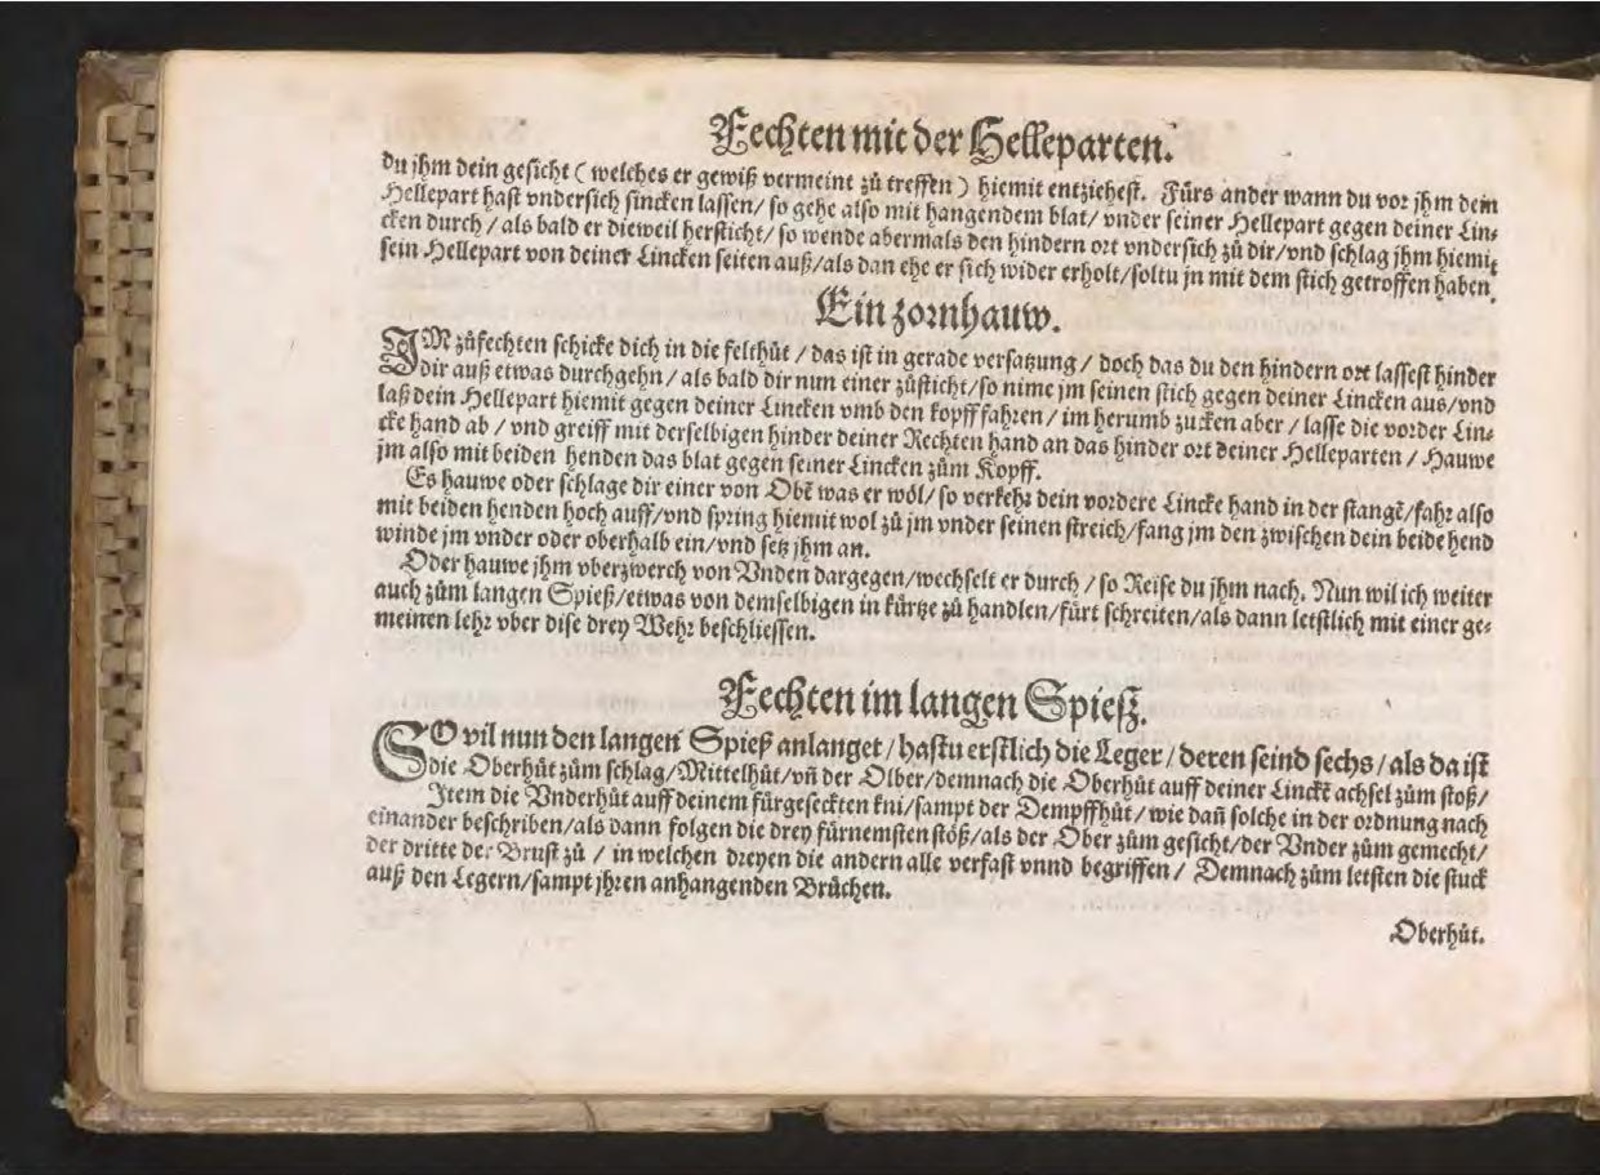 Fechten mit der Helleparten.
du jhm dein gesicht ( welches er gewiß vermeint zů treffen ) hiemit entziehest. Fürs ander wann du vor jhm dein
Hellepart hast vndersich sincken lassen/ so gehe also mit hangendem blat/ vnder seiner Hellepart gegen deiner Lin⸗
cken durch / als bald er dieweil hersticht/ so wende abermals den hindern ort vndersich zů dir/vnd schlag jhm hiemit
sein Hellepart von deiner Lincken seiten auß/als dan ehe er sich wider erholt/soltu jn mit dem stich getroffen haben.
Ein zornhauw.
IM zůfechten schicke dich in die felthůt / das ist in gerade versatzung / doch das du den hindern ort lassest hinder
dir auß etwas durchgehn / als bald dir nun einer zůsticht/so nime jm seinen stich gegen deiner Lincken aus/vnd
laß dein Hellepart hiemit gegen deiner Lincken vmb den kopff fahren / im herumb zucken aber / lasse die vorder Lin⸗
cke hand ab / vnd greiff mit derselbigen hinder deiner Rechten hand an das hinder ort deiner Helleparten / Hauwe
jm also mit beiden henden das blat gegen seiner Lincken zům Kopff.
Es hauwe oder schlage dir einer von Obẽ was er wöl/ so verkehr dein vordere Lincke hand in der stangẽ/fahr also
mit beiden henden hoch auff/vnd spring hiemit wol zů jm vnder seinen streich/fang jm den zwischen dein beide hend
winde jm vnder oder oberhalb ein/vnd setz jhm an.
Oder hauwe jhm vberzwerch von Vnden dargegen/wechselt er durch / so Reise du jhm nach. Nun wil ich weiter
auch zům langen Spieß/etwas von demselbigen in kürtze zů handlen/fürt schreiten/als dann letstlich mit einer ge⸗
meinen lehr vber dise drey Wehr beschliessen.
Fechten im langen Spiesz.
SO vil nun den langen Spieß anlanget / hastu erstlich die Leger / deren seind sechs / als da ist
die Oberhůt zům schlag/Mittelhůt/vñ der Olber/demnach die Oberhůt auff deiner Linckẽ achsel zům stoß/
Item die Vnderhůt auff deinem fürgesetzten kni/sampt der Dempffhůt / wie dañ solche in der ordnung nach
einander beschriben/als dann folgen die drey fürnemsten stöß/als der Ober zům gesicht/der Vnder zům gemecht/
der dritte der Brust zů / in welchen dreyen die andern alle verfast vnnd begriffen / Demnach zům letsten die stuck
auß den Legern/sampt jhren anhangenden Brüchen.
Oberhůt.